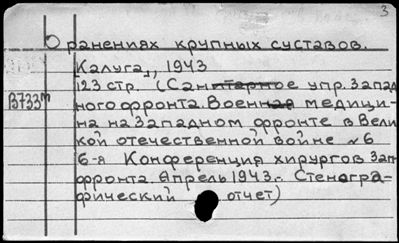 3
О ранениях крупных суставов.
[Калуга], 1943
123 стр. (Санитарное упр. Запад
В733м ного фронта. Военная медици-
на на Западном фронте в Вели
кой отечественной войне № 6
6-я Конференция хирургов Зап
фронта Апрель 1943.- Стеногра-
фический отчет)